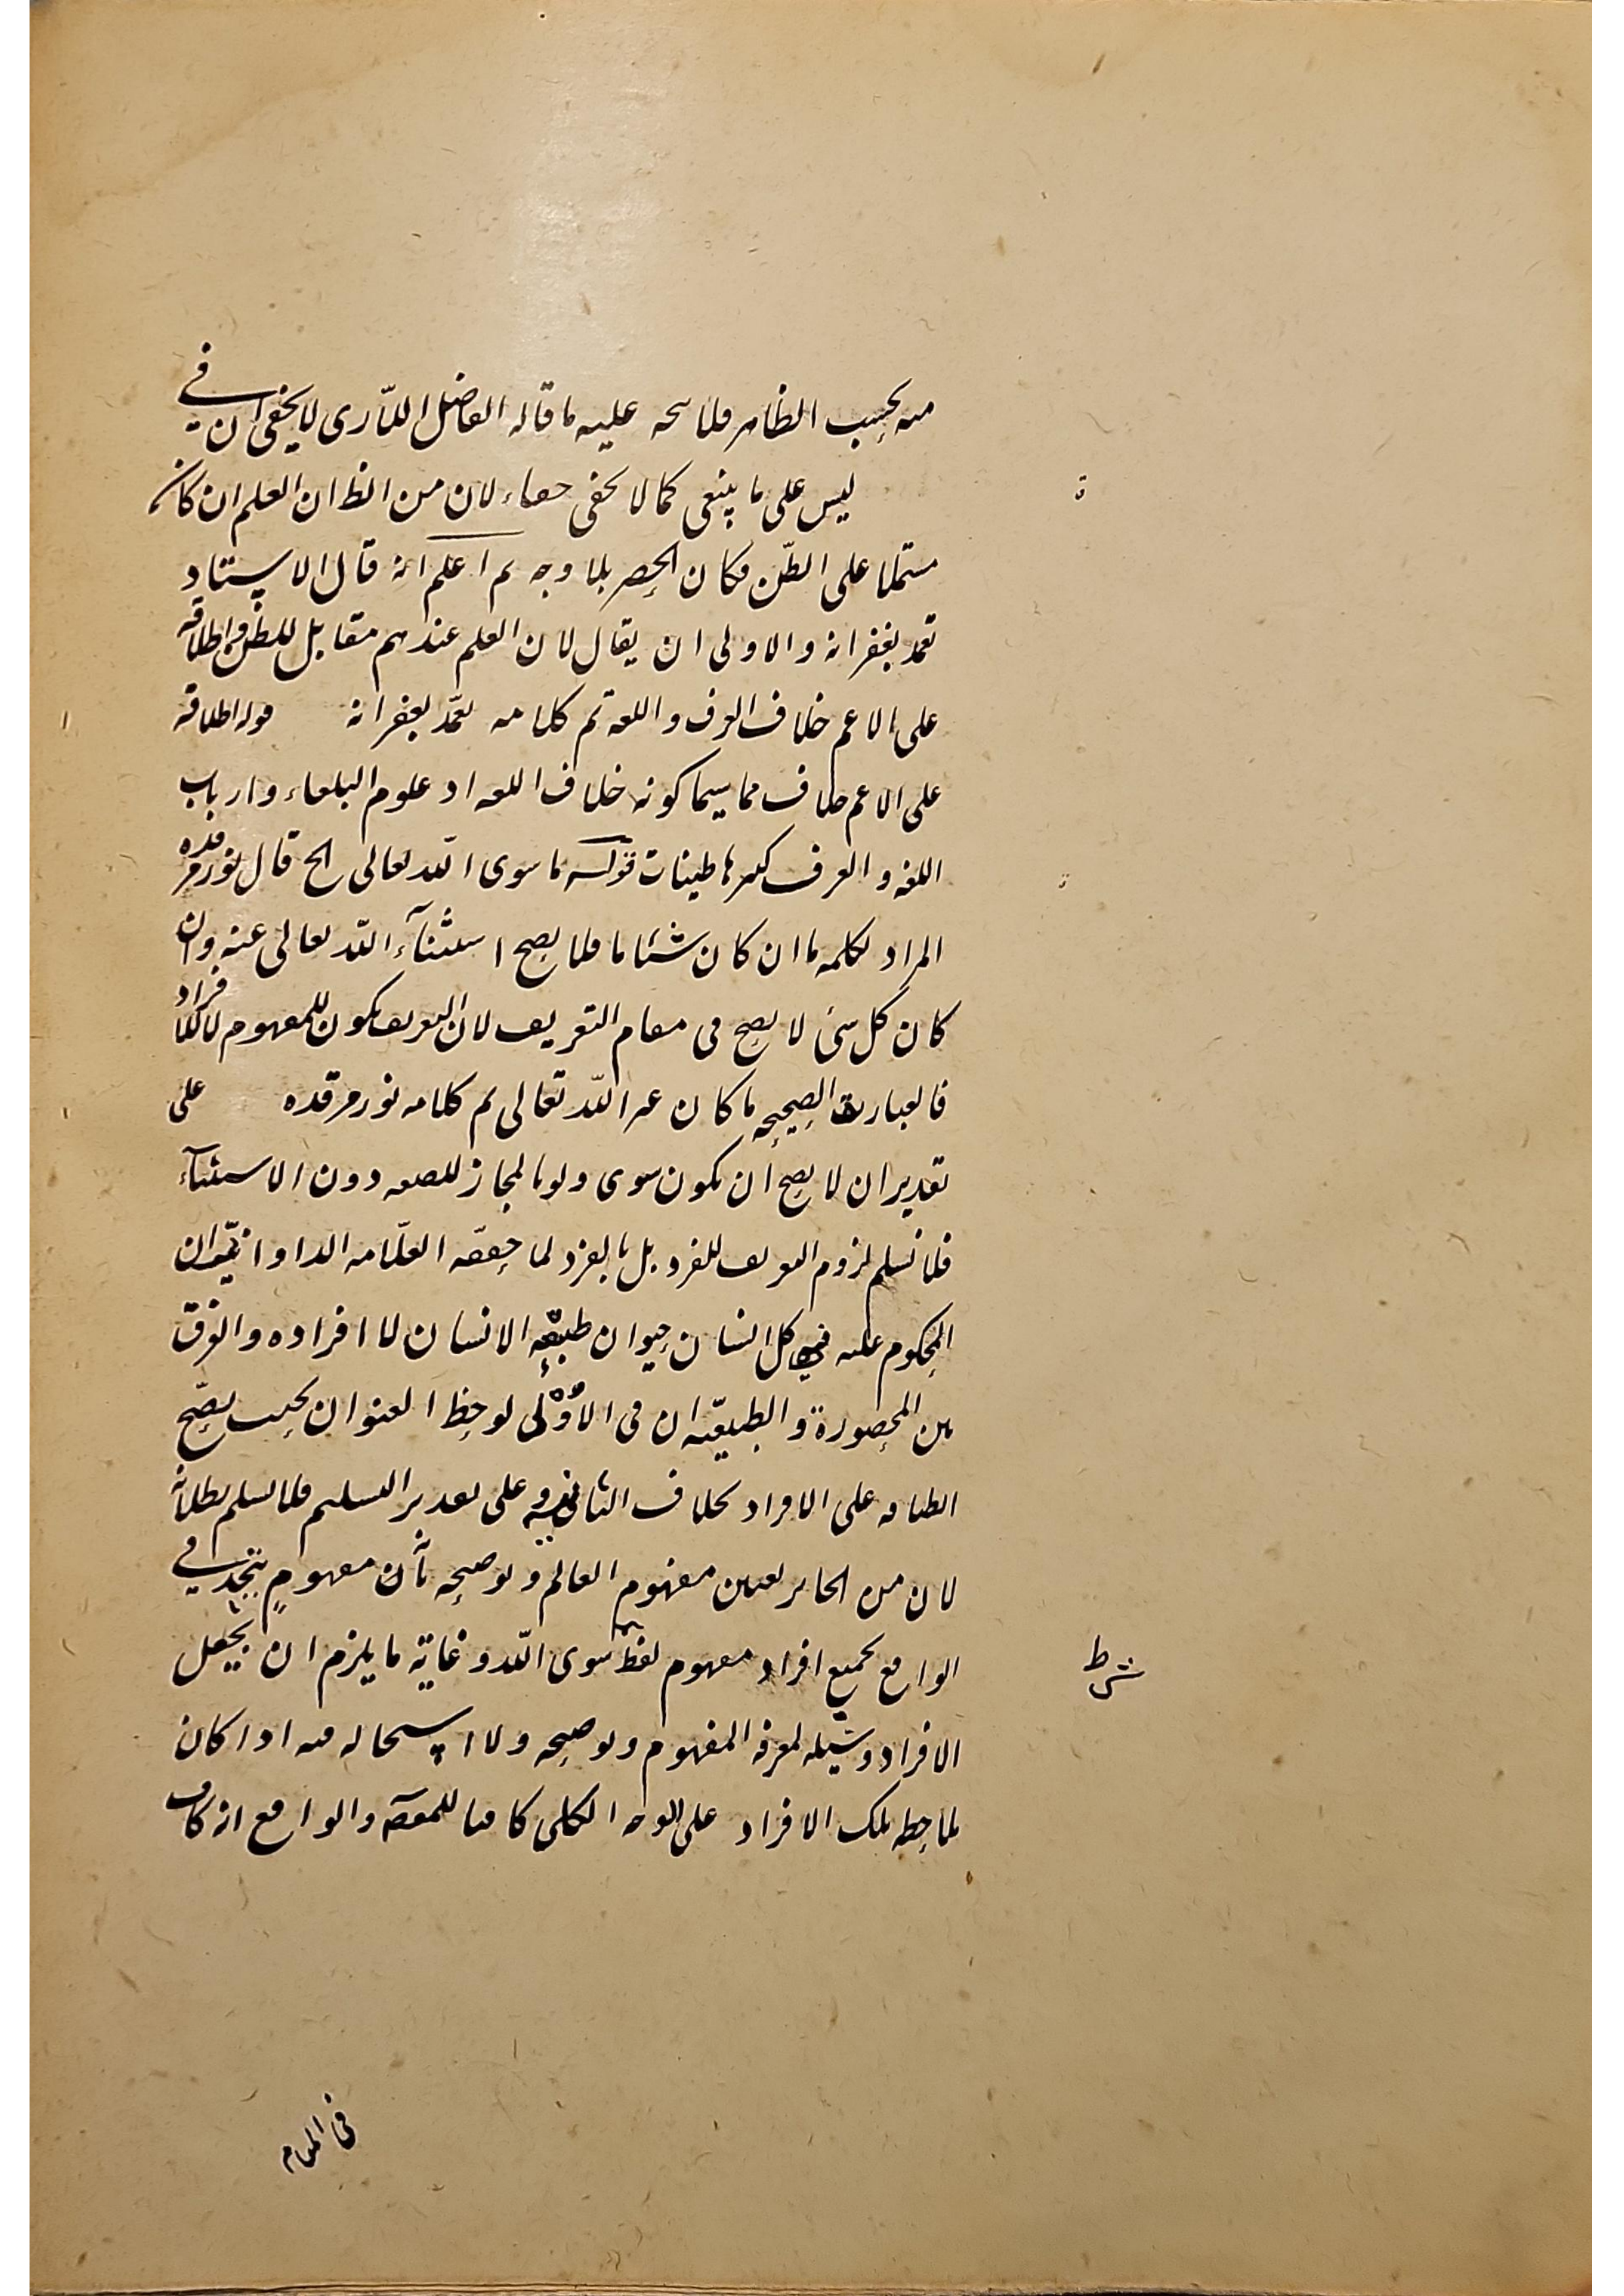 منه بحسب الظاهر فلا يتجه عليه ما قاله الفاضل اللاري لا يخفى ان في
ليس على ما ينبغى كما لا يخفى لان من الظ ان العلم ان كان
مشتملا على الظن فكان الحصر بلا وجه ثم اعلم انه قال الاستاد
تغمد بغفرانه والاولى ان يقال لان العلم عندهم مقابل للظن واطلاقه
على الاعم خلاف العرف واللغة تم كلامه تغمد بغفرانه قوله اطلاقه
على الاعم خلاف مما سيما كونه خلاف اللغه اذ علوم البلغاء وارباب
اللغة والعرف ظنيات قوله ما سوى الله تعالى الخ قال نور مرقده
المراد بكلمه ما ان كان شيئا ما فلا يصح استثناء الله تعالى عنه وان
كان كل شئ لا يصح فى مقام التعريف لان التعريف يكون للمفهوم لا للافراد
فالعبارة الصحيحه ما كان غير الله تعالى تم كلامه نور مرقده على
تقدير ان لا يصح ان يكون سوى ولو بالمجاز للصفه دون الاستثناء
فلا نسلم لزوم التعريف للفرد بل بالفرد لما حققه العلامه الدوانى ان
المحكوم عليه فى كل انسان حيوان طبيعة الانسان لا افراده والفرق
بين المحصورة والطبيعيه ان فى الاولى لوحظ العنوان بحيث يصح
انطباقه على الافراد بخلاف الثانيه وعلى تقدير التسليم فلا نسلم بطلانه
لان من الجايز تعيين مفهوم العالم وتوضيحه بأن مفهوم يتحد في
الواقع بجميع افراد مفهوم لفظ سوى الله وغاية ما يلزم ان يجعل
الافراد وسيله لمعرفة المفهوم وتوضيحه ولا استحاله فيه اذا كان
ملاحظه تلك الافراد على الوجه الكلى كافيا للمقصد والواقع انه كاف
شرط
فى المقام